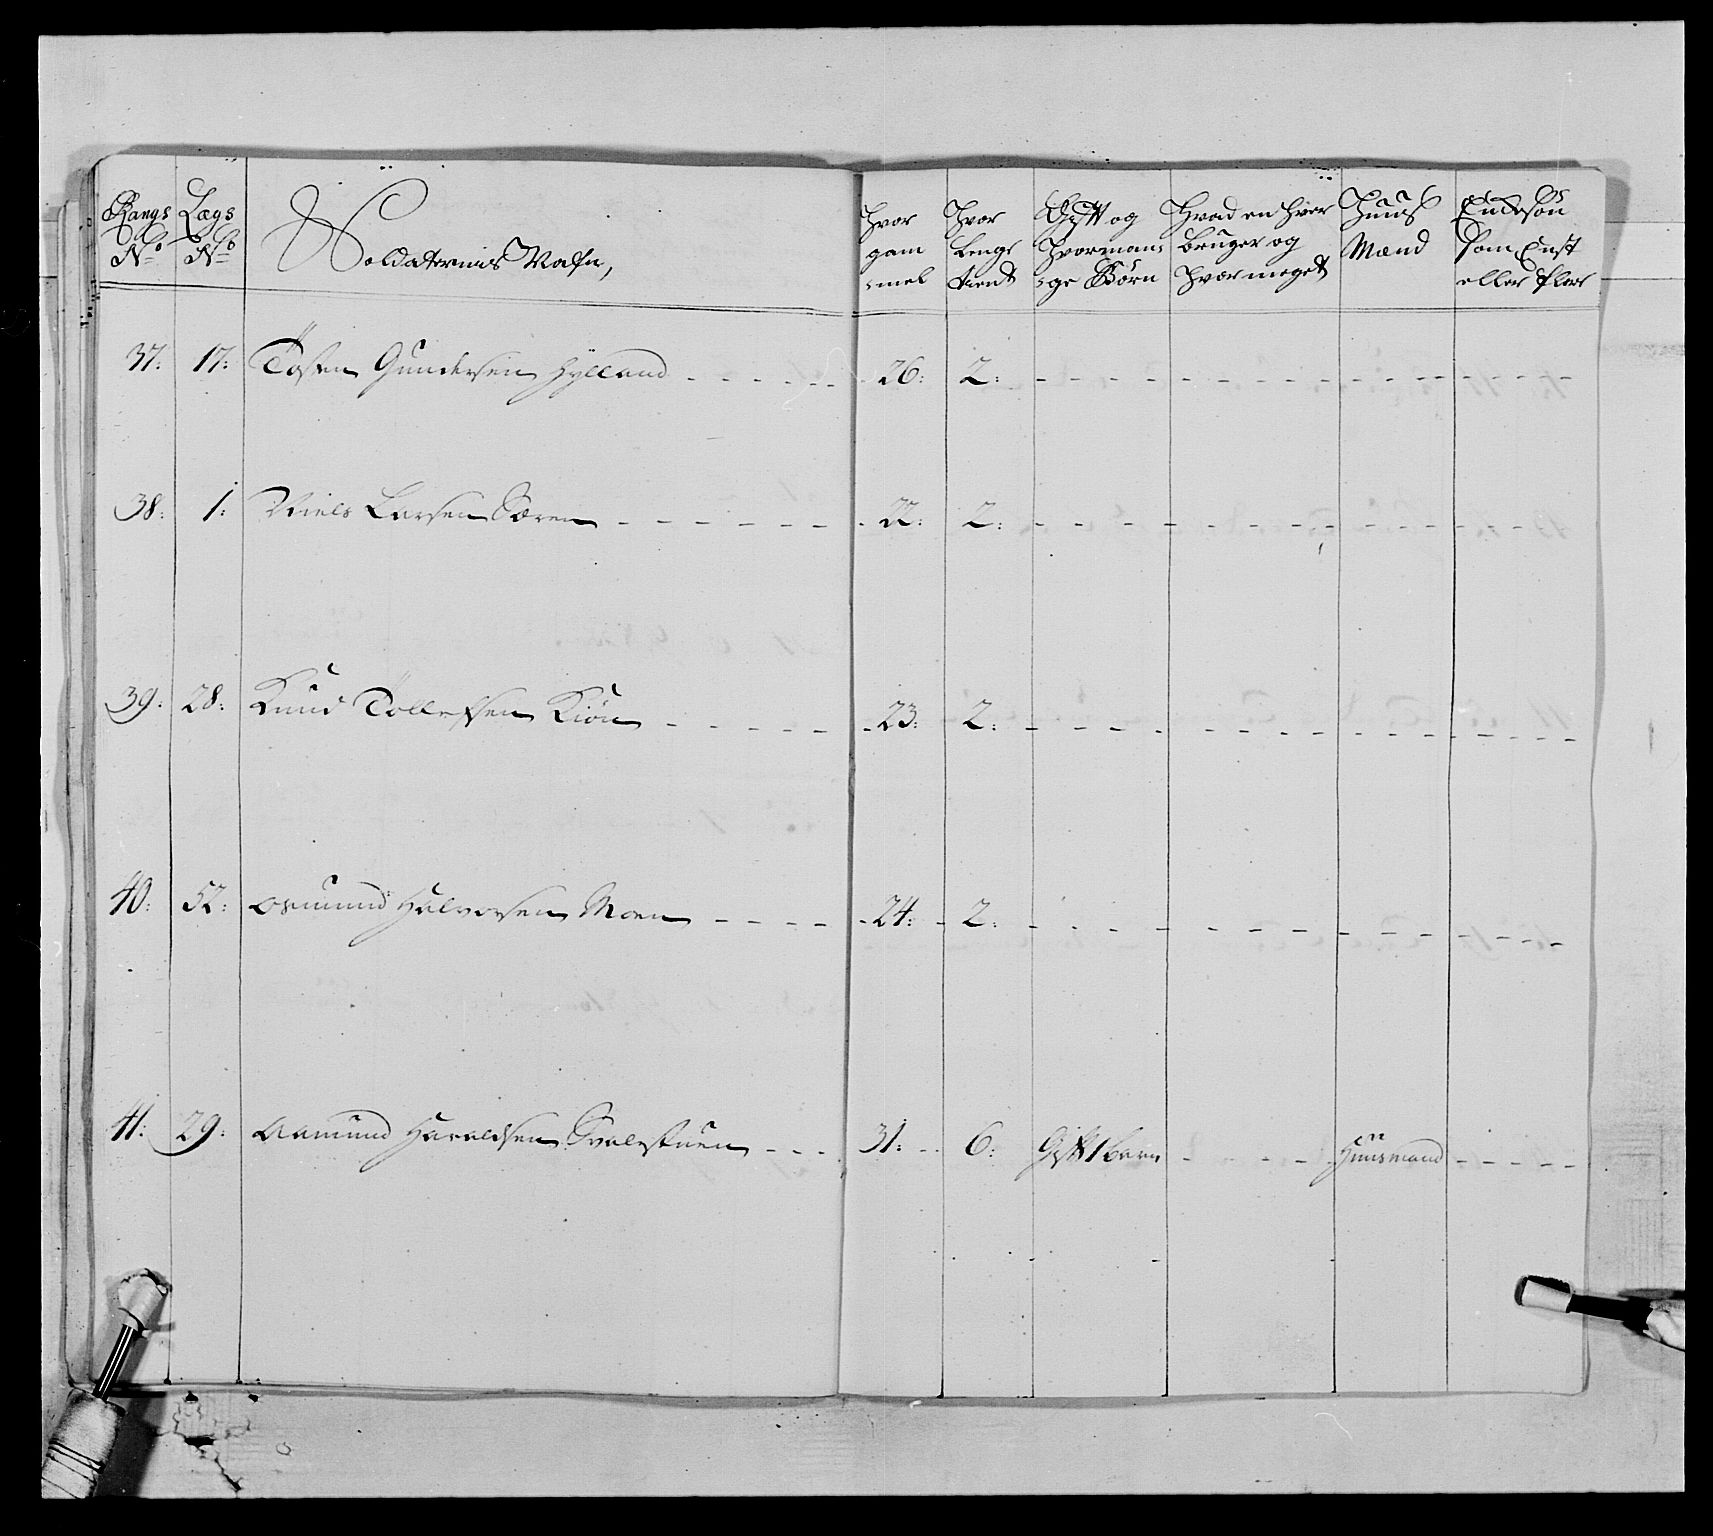 Rangs No
Lægs No
Soldaternis Nafn,
Hvor gam mel
Hvor Lenge tient
Gift og Hvormange Børn
Hvad en Hver bruger og Hvor meget
Huus Mænd
Enckesøn Som Enst eller Flere
37: 17: Gundersen Hylland 26: 2:
38: 1: Niels Larsen Søren 22: 2:
39: 28: Knud Tollefsen Kiøn 23: 2:
40: 52: Osmund Halvorsen Moen 24: 2:
41: 29: Aamund Haraldsen Svalestuen 31: 6: Gift 1 barn Huusmand